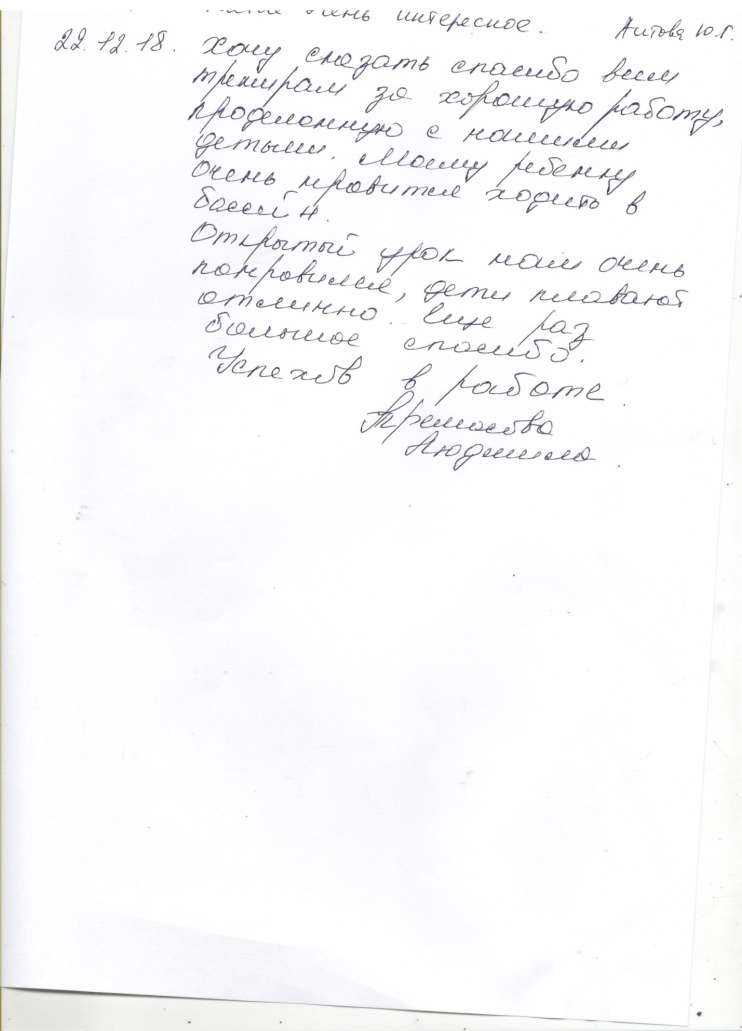 очень интересное. Аитова Ю.Г.
22.12.18. Хочу сказать спасибо всем
тренирам за хорошую работу,
проделанную с нашими
детьми. Моему ребенку
очень нравится ходить в
бассейн.
Открытый урок нам очень
понравился, дети плавают
отлично. Еще раз
большое спасибо.
Успехов в работе.
Людмила.